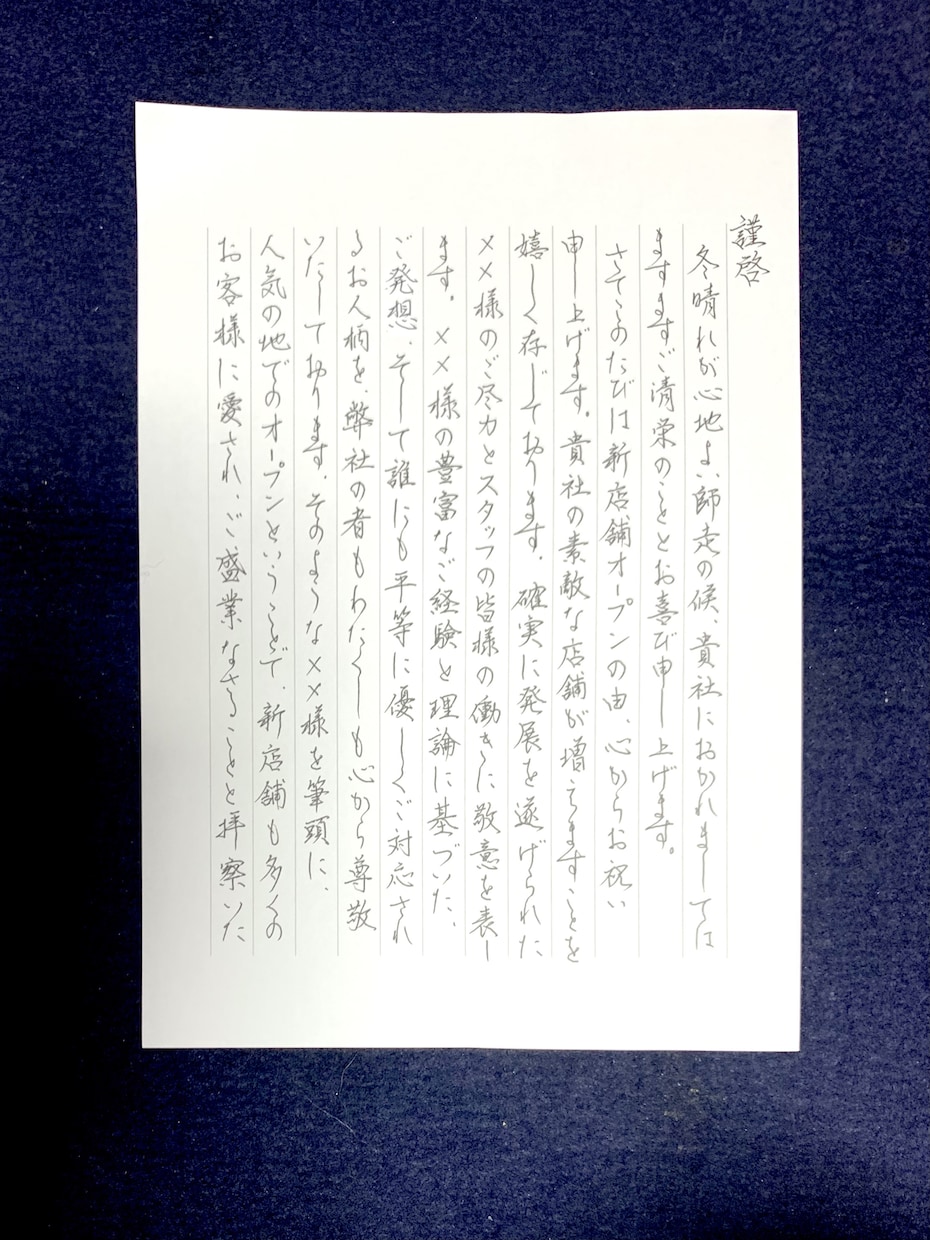 謹啓
冬晴れが心地よい師走の候、貴社におかれましては
ますますご清栄のこととお喜び申し上げます。
さてこのたびは新店舗オープンの由、心からお祝い
申し上げます。貴社の素敵な店舗が増えますことを
嬉しく存じております。確実に発展を遂げられた
××様のご尽力とスタッフの皆様の働きに敬意を表し
ます。××様の豊富なご経験と理論に基づいた、
ご発想、そして誰にも平等に優しくご対応され
るお人柄を、弊社の者もわたくしも心から尊敬
いたしております。そのような××様を筆頭に、
人気の地でのオープンということで、新店舗も多くの
お客様に愛され、ご盛業なさることと拝察いた